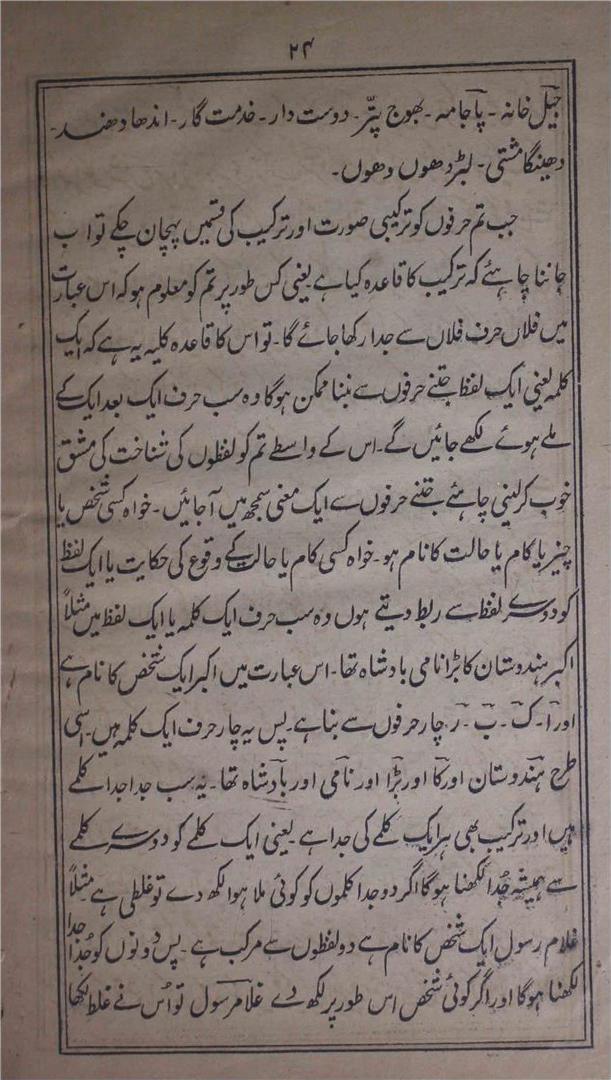 ۲۴
جیل خانہ - پاجامہ - بھوج پتّر - دوست دار - خدمت گار - اندھا دھند -
دھینگا مشتی - لبڑ دھوں دھوں -
جب تم حرفوں کو ترکیبی صورت اور ترکیب کی قسمیں پہچان چکے تو اب
جاننا چاہئے کہ ترکیب کا قاعدہ کیا ہے یعنی کس طور پر تم کو معلوم ہو کہ اس عبارت
میں فلاں حرف فلاں سے جدا رکھا جائے گا - تو اس کا قاعدہ کلیہ یہ ہے کہ ایک
کلمہ یعنی ایک لفظ جتنے حرفوں سے بننا ممکن ہوگا وہ سب حرف ایک بعد ایک کے
ملے ہوئے لکھے جائیں گے - اس کے واسطے تم کو لفظوں کی شناخت کی مشق
خوب کر لینی چاہئے جتنے حرفوں سے ایک معنی سمجھ میں آ جائیں - خواہ کسی شخص یا
چیز یا کام یا حالت کا نام ہو - خواہ کسی کام یا حالت کے وقوع کی حکایت یا ایک لفظ
کو دوسرے لفظ سے ربط دیتے ہوں وہ سب حرف ایک کلمہ یا ایک لفظ میں مثلاً
اکبر ہندوستان کا بڑا نامی بادشاہ تھا - اس عبارت میں اکبر ایک شخص کا نام ہے
اور آ - ک - ب - ر چار حرفوں سے بنا ہے - پس یہ چار حرف ایک کلمہ ہیں - اسی
طرح ہندوستان اور کا اور بڑا اور نامی اور بادشاہ تھا - یہ سب جدا جدا کلمے
ہیں اور ترکیب بھی ہر ایک کلمے کی جدا ہے - یعنی ایک کلمے کو دوسرے کلمے
سے ہمیشہ جُدا لکھنا ہوگا اگر دو جدا کلموں کو کوئی ملا ہوا لکھ دے تو غلطی ہے مثلاً
غلام رسول ایک شخص کا نام ہے دو لفظوں سے مرکب ہے - پس دونوں کو جُدا جدا
لکھنا ہوگا اور اگر کوئی شخص اس طور پر لکھ دے غلامرسول تو اُس نے غلط لکھا